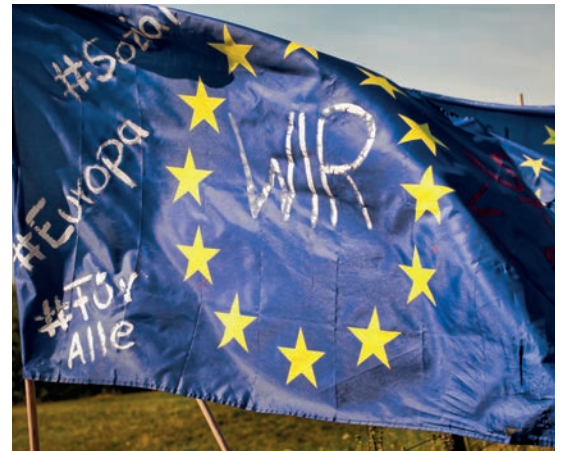 #Sozial
#Europa
#Für
Alle
WIR